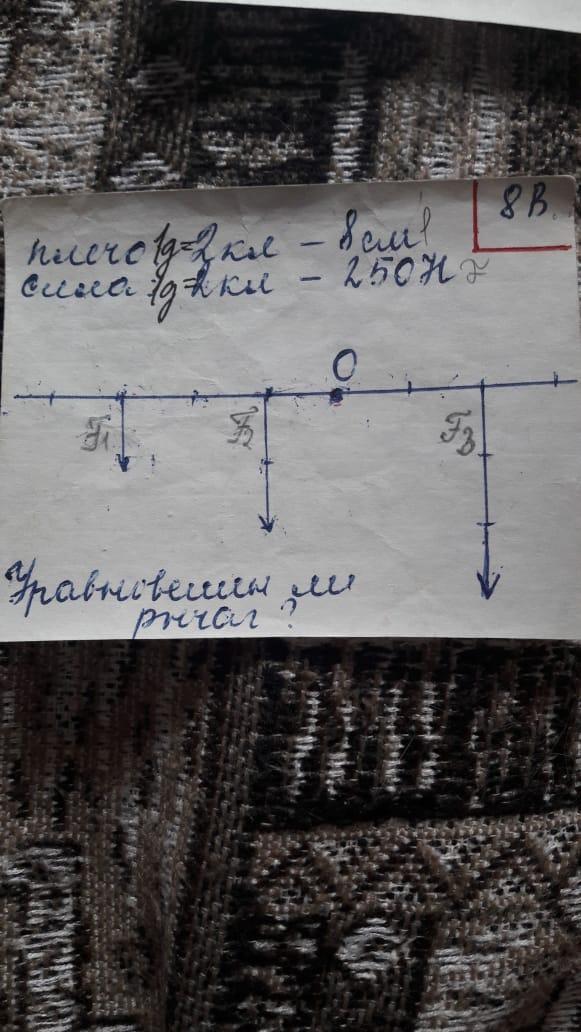 8 В.
плечо 1д=2кл – 8 см
сила 1д=2кл – 250Н
О
F1
F2
F3
Уравновешен ли
рычаг?